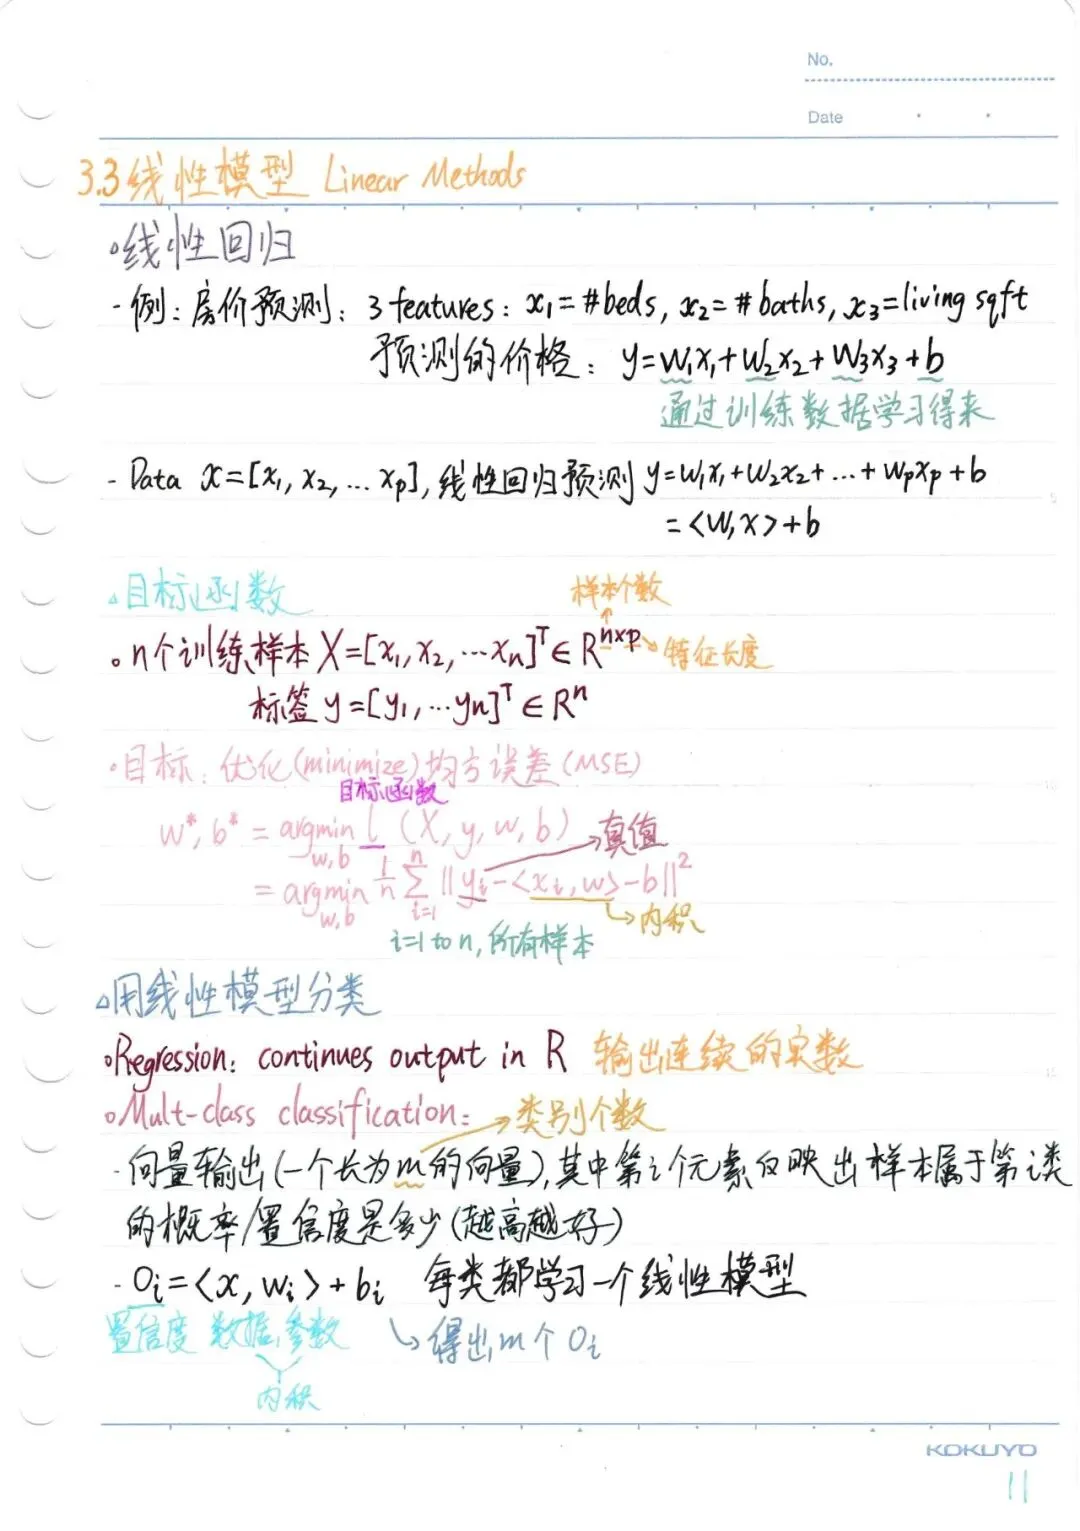 No.
Date
3.3 线性模型 Linear Methods
线性回归
- 例：房价预测：3 features：x₁=#beds, x₂=# baths, x₃=living sqft
预测的价格：y=w₁x₁+w₂x₂+w₃x₃+b
通过训练数据学习得来
- Data x=[x₁, x₂, ... xₚ], 线性回归预测 y=w₁x₁+w₂x₂+...+wₚxₚ+b
=<w,x>+b
△目标函数
样本个数
。n个训练样本 X=[x₁, x₂, ...xₙ]ᵀ∈Rⁿˣᵖ → 特征长度
标签 y=[y₁, ...yₙ]ᵀ∈Rⁿ
·目标：优化(minimize)均方误差(MSE)
目标函数
w*, b* = argmin_{w,b} l (X, y, w, b) → 真值
= argmin_{w,b} 1/n ∑_{i=1}^{n} ||yᵢ-<xᵢ, w>-b||²
→内积
i=1 to n, 所有样本
△用线性模型分类
。Regression：continues output in R 输出连续的实数
。Mult-class classification： → 类别个数
- 向量输出(一个长为m的向量), 其中第i个元素反映出样本属于第i类
的概率/置信度是多少(越高越好)
- Oᵢ=<x, wᵢ>+bᵢ 每类都学习一个线性模型
置信度 数据,参数 ↳得出m个Oᵢ
内积
KOKUYO
11